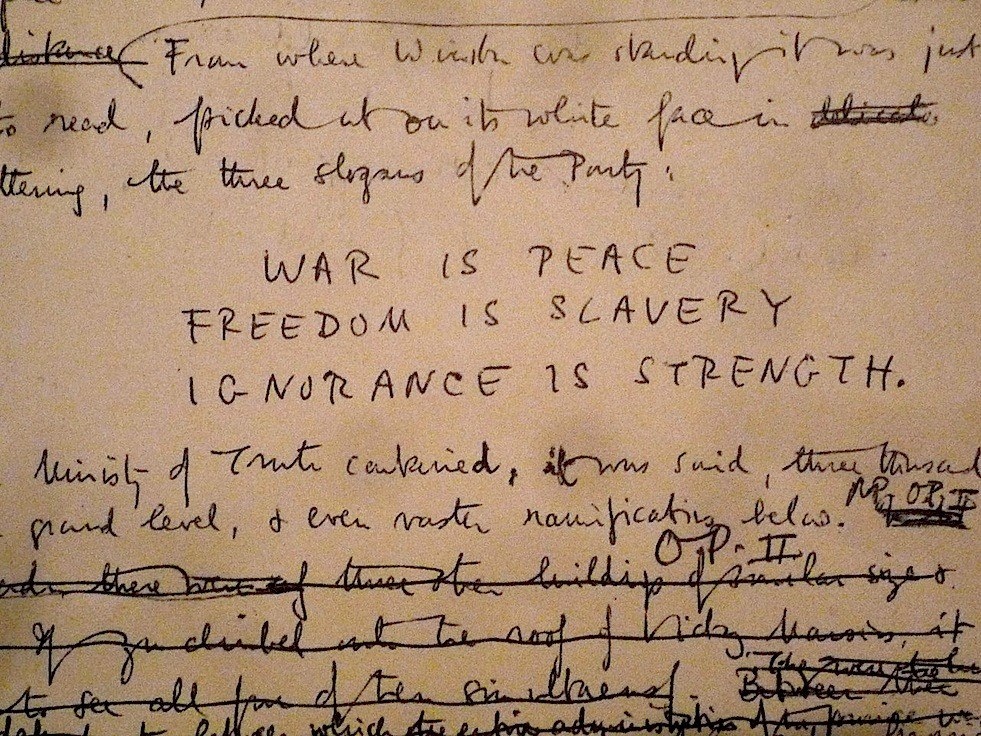 distance From where Winston was standing it was just
to read, picked out on its white face in
ttering, the three slogans of the Party:
WAR IS PEACE
FREEDOM IS SLAVERY
IGNORANCE IS STRENGTH.
Ministry of Truth contained, it was said, three thousand
ground level, & even vaster ramifications below.
O.P. II
there were three other buildings of similar size &
If you climbed onto the roof of Victory Mansions, it
to see all four of them simultaneously. Between
which the entire administrative